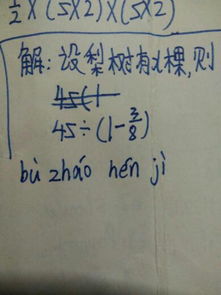 ½×(5×2)×(5×2)
解:设梨树有x棵,则
45(1
45÷(1-3/8)
bù zháo hén jì